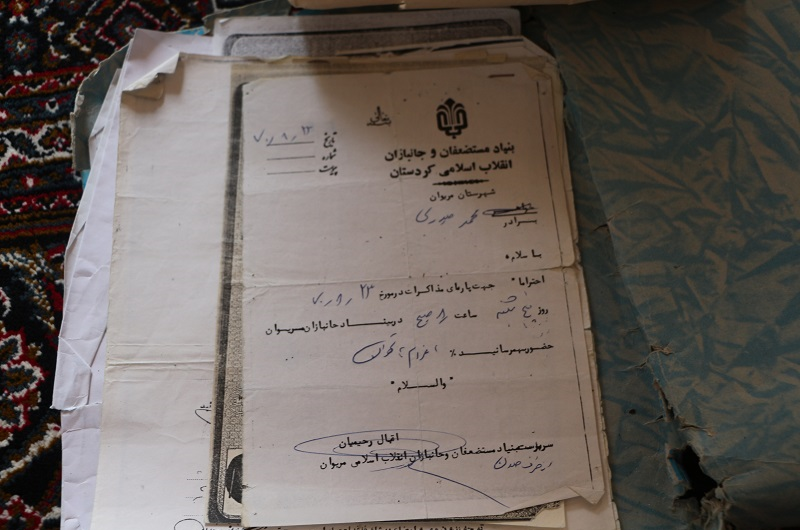 بنیاد مستضعفان و جانبازان
انقلاب اسلامی کردستان
تاریخ
شماره
پیوست
شهرستان مریوان
برادر محمد
با سلام
احتراما" جهت پاره‌ای مذاکرات در مورخ
روز پنج شنبه ساعت ۸ صبح در بنیاد جانبازان مریوان
حضور بهم رسانید %
" والسلام "
اقبال رحیمیان
سرپرست بنیاد مستضعفان و جانبازان انقلاب اسلامی مریوان